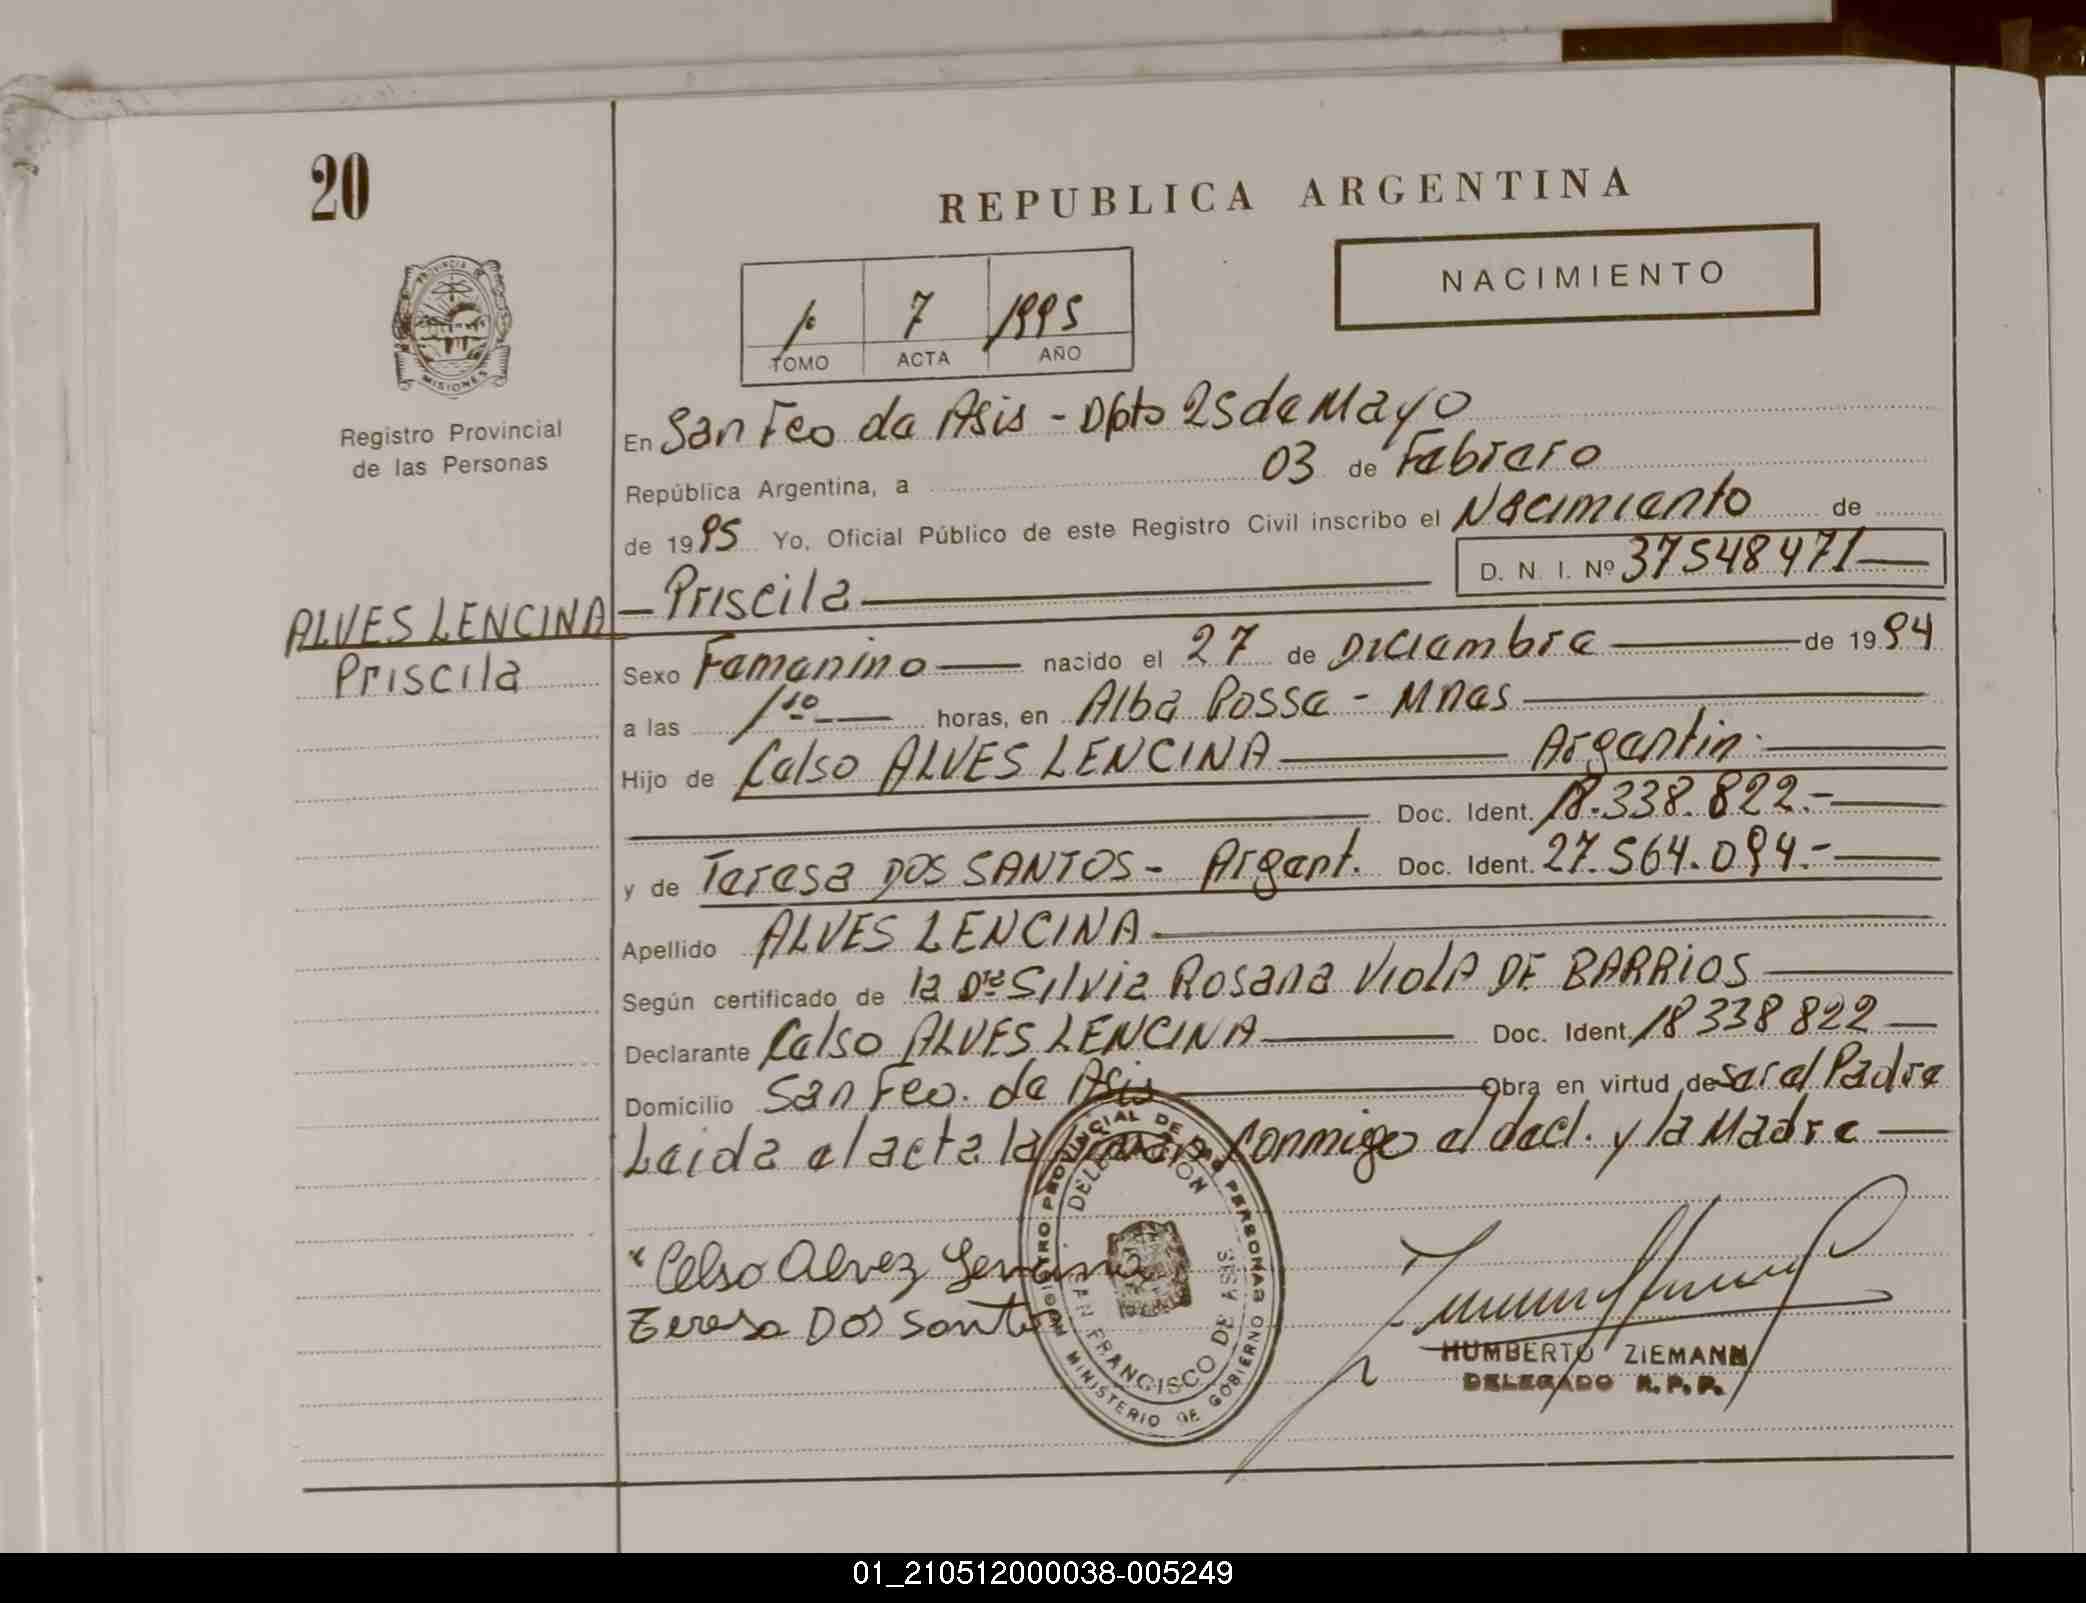 20
REPUBLICA ARGENTINA
PROVINCIA DE
MISIONES
Registro Provincial
de las Personas
NACIMIENTO
1º 7 1995
TOMO ACTA AÑO
En San Fco de Asis - Dpto 25 de Mayo
República Argentina, a 03 de Febrero
de 1995 Yo, Oficial Público de este Registro Civil inscribo el Nacimiento de
D. N. I. Nº 37548471
ALVES LENCINA - Priscila
Priscila
Sexo Femenino nacido el 27 de Diciembre de 1994
a las 1¹⁰ horas, en Alba Posse - Mnes
Hijo de Celso ALVES LENCINA Argentin.
Doc. Ident. 18.338.822.-
y de Teresa DOS SANTOS - Argent. Doc. Ident. 27.564.094.-
Apellido ALVES LENCINA
Según certificado de la Dra Silvia Rosana Viola DE BARRIOS
Declarante Celso ALVES LENCINA Doc. Ident. 18338822
Domicilio San Fco. de Asis Obra en virtud de ser el Padre
Leida el acta la firman conmigo el decl. y la Madre
Celso Alvez Lencina
Teresa Dos Santos
REGISTRO PROVINCIAL DE LAS PERSONAS
DELEGACION
SAN FRANCISCO DE ASIS
MINISTERIO DE GOBIERNO
HUMBERTO ZIEMANN
DELEGADO R. P. P.
01_210512000038-005249